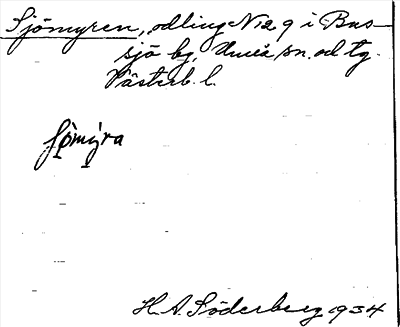 Sjömyren, odling N12 9 i Bus-
sjö by, Umeå sn. och tg.
Västerb. l.
fömýra
H. A. Söderberg 1934